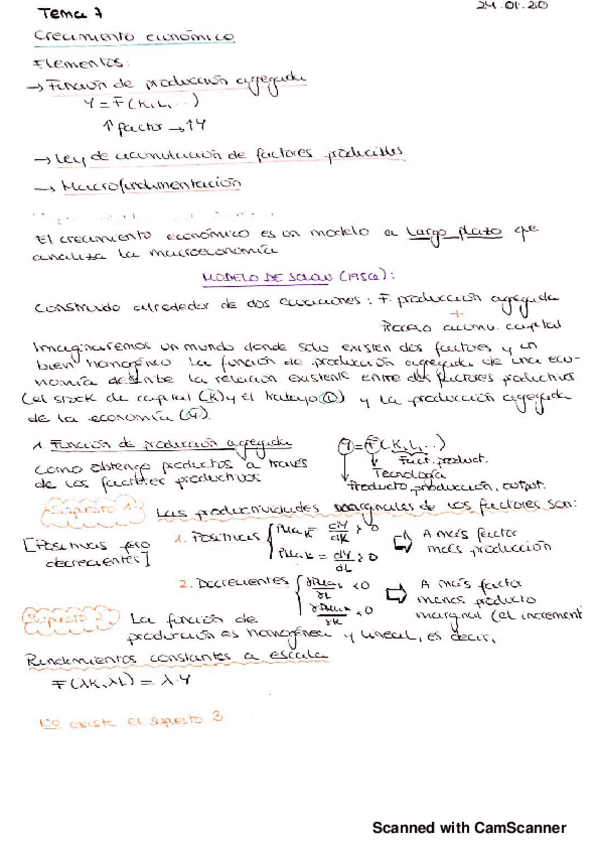 Tema 7
24.01.20
Crecimiento económico
Elementos:
→ Función de producción agregada
Y = F(K, L, ...)
↑ factor → ↑Y
→ Ley de acumulación de factores producibles
→ Macrofundamentación
El crecimiento económico es un modelo a largo plazo que
analiza la macroeconomía
MODELO DE SOLOW (1956):
Construido alrededor de dos ecuaciones: F. producción agregada
+
Proceso acumu. capital
Imaginaremos un mundo donde solo existen dos factores y un
bien homogéneo. La función de producción agregada de una eco-
nomía describe la relación existente entre dos factores productivos
(el stock de capital (K) y el trabajo (L)) y la producción agregada
de la economía (Y).
1. Función de producción agregada
Y = F(K, L, ...)
Como obtengo productos a través
de los factores productivos
Fact. product.
Tecnología
Producto, producción, output.
Supuesto 1: Las productividades marginales de los factores son:
[Positivas pero
decrecientes]
1. Positivas
PMaK = dY/dK > 0
PMaK = dY/dL > 0
⇨ A más factor
más producción
2. Decrecientes
< 0
< 0
⇨ A más factor
menos producto
marginal (el increment
Supuesto 2: La función de
producción es homogénea y lineal, es decir,
Rendimientos constantes a escala
F(λK, λL) = λ·Y
No existe el supuesto 3
Scanned with CamScanner